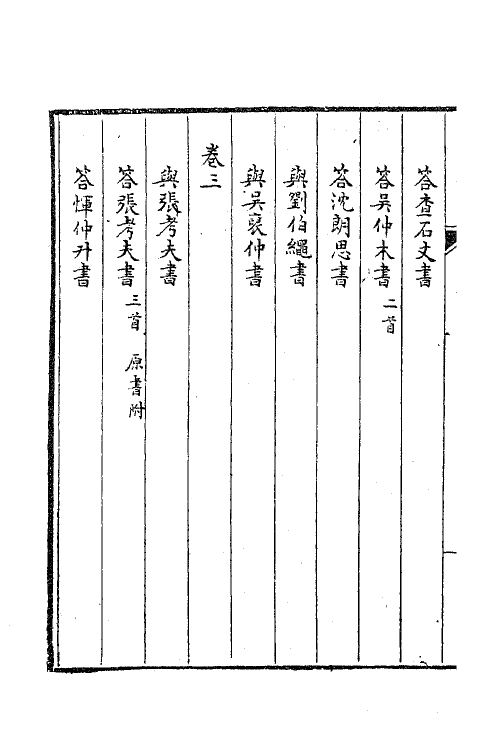 答查石丈書
答吳仲木書 二首
答沈朗思書
與劉伯繩書
與吳裒仲書
卷三
與張考夫書
答張考夫書 三首 原書附
答惲仲升書